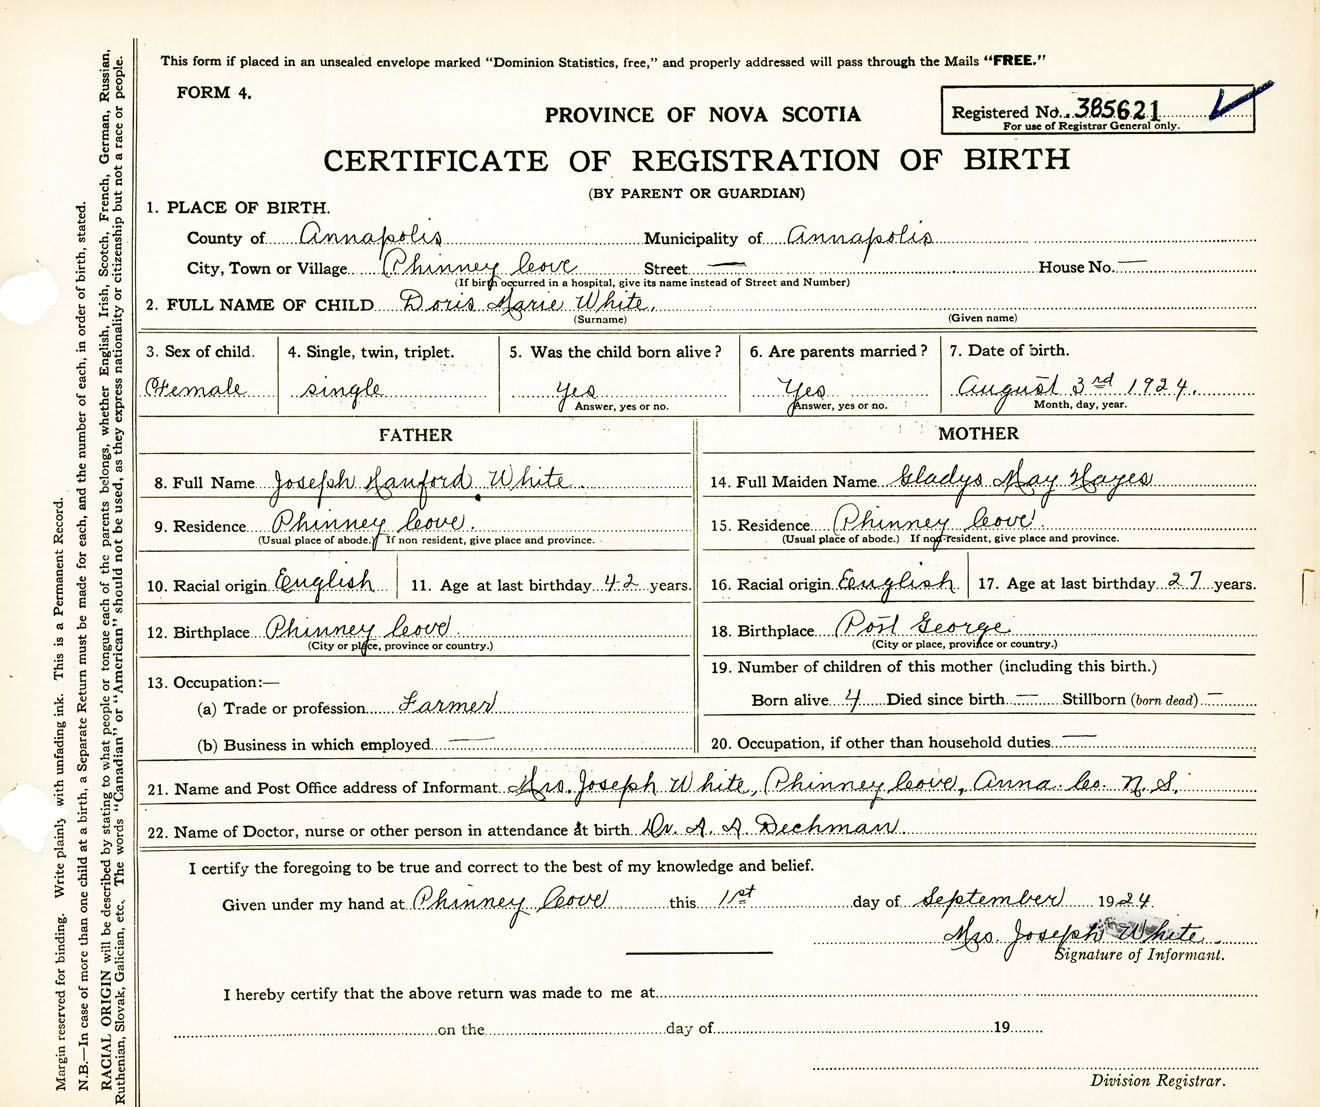 This form if placed in an unsealed envelope marked "Dominion Statistics, free," and properly addressed will pass through the Mails "FREE."
FORM 4.
PROVINCE OF NOVA SCOTIA
Registered No. 385621
For use of Registrar General only.
CERTIFICATE OF REGISTRATION OF BIRTH
(BY PARENT OR GUARDIAN)
1. PLACE OF BIRTH.
County of Annapolis Municipality of Annapolis
City, Town or Village Phinney Cove Street — House No. —
(If birth occurred in a hospital, give its name instead of Street and Number)
2. FULL NAME OF CHILD Doris Marie White.
(Surname) (Given name)
3. Sex of child. 4. Single, twin, triplet. 5. Was the child born alive? 6. Are parents married? 7. Date of birth.
Female single Yes Yes August 3rd 1924.
Answer, yes or no. Answer, yes or no. Month, day, year.
FATHER MOTHER
8. Full Name Joseph Hanford White. 14. Full Maiden Name Gladys May Hayes
9. Residence Phinney Cove. 15. Residence Phinney Cove.
(Usual place of abode.) If non resident, give place and province. (Usual place of abode.) If non-resident, give place and province.
10. Racial origin English 11. Age at last birthday 42 years. 16. Racial origin English 17. Age at last birthday 27 years.
12. Birthplace Phinney Cove. 18. Birthplace Port George
(City or place, province or country.) (City or place, province or country.)
19. Number of children of this mother (including this birth.)
13. Occupation:—
(a) Trade or profession Farmer Born alive 4 Died since birth — Stillborn (born dead) —
(b) Business in which employed — 20. Occupation, if other than household duties —
21. Name and Post Office address of Informant Mrs. Joseph White, Phinney Cove, Anna. Co. N. S.
22. Name of Doctor, nurse or other person in attendance at birth Dr. A. A. Dechman.
I certify the foregoing to be true and correct to the best of my knowledge and belief.
Given under my hand at Phinney Cove this 1st day of September 1924.
Mrs. Joseph White.
Signature of Informant.
I hereby certify that the above return was made to me at
on the day of 19
Division Registrar.
Margin reserved for binding. Write plainly with unfading ink. This is a Permanent Record.
N.B.—In case of more than one child at a birth, a Separate Return must be made for each, and the number of each, in order of birth, stated.
RACIAL ORIGIN will be described by stating to what people or tongue each of the parents belongs, whether English, Irish, Scotch, French, German, Russian,
Ruthenian, Slovak, Galician, etc. The words "Canadian" or "American" should not be used, as they express nationality or citizenship but not a race or people.